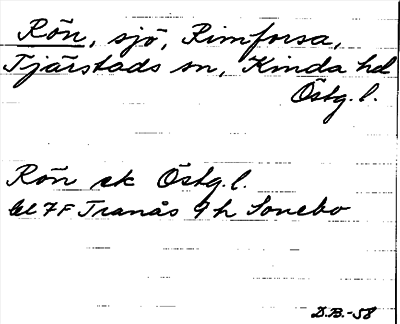 Rön, sjö, Rimforsa,
Tjärstads sn, Kinda hd
Östg. l.
Rön ek Östg. l.
bl 7F Tranås 9h Sonebo
D.B. -58